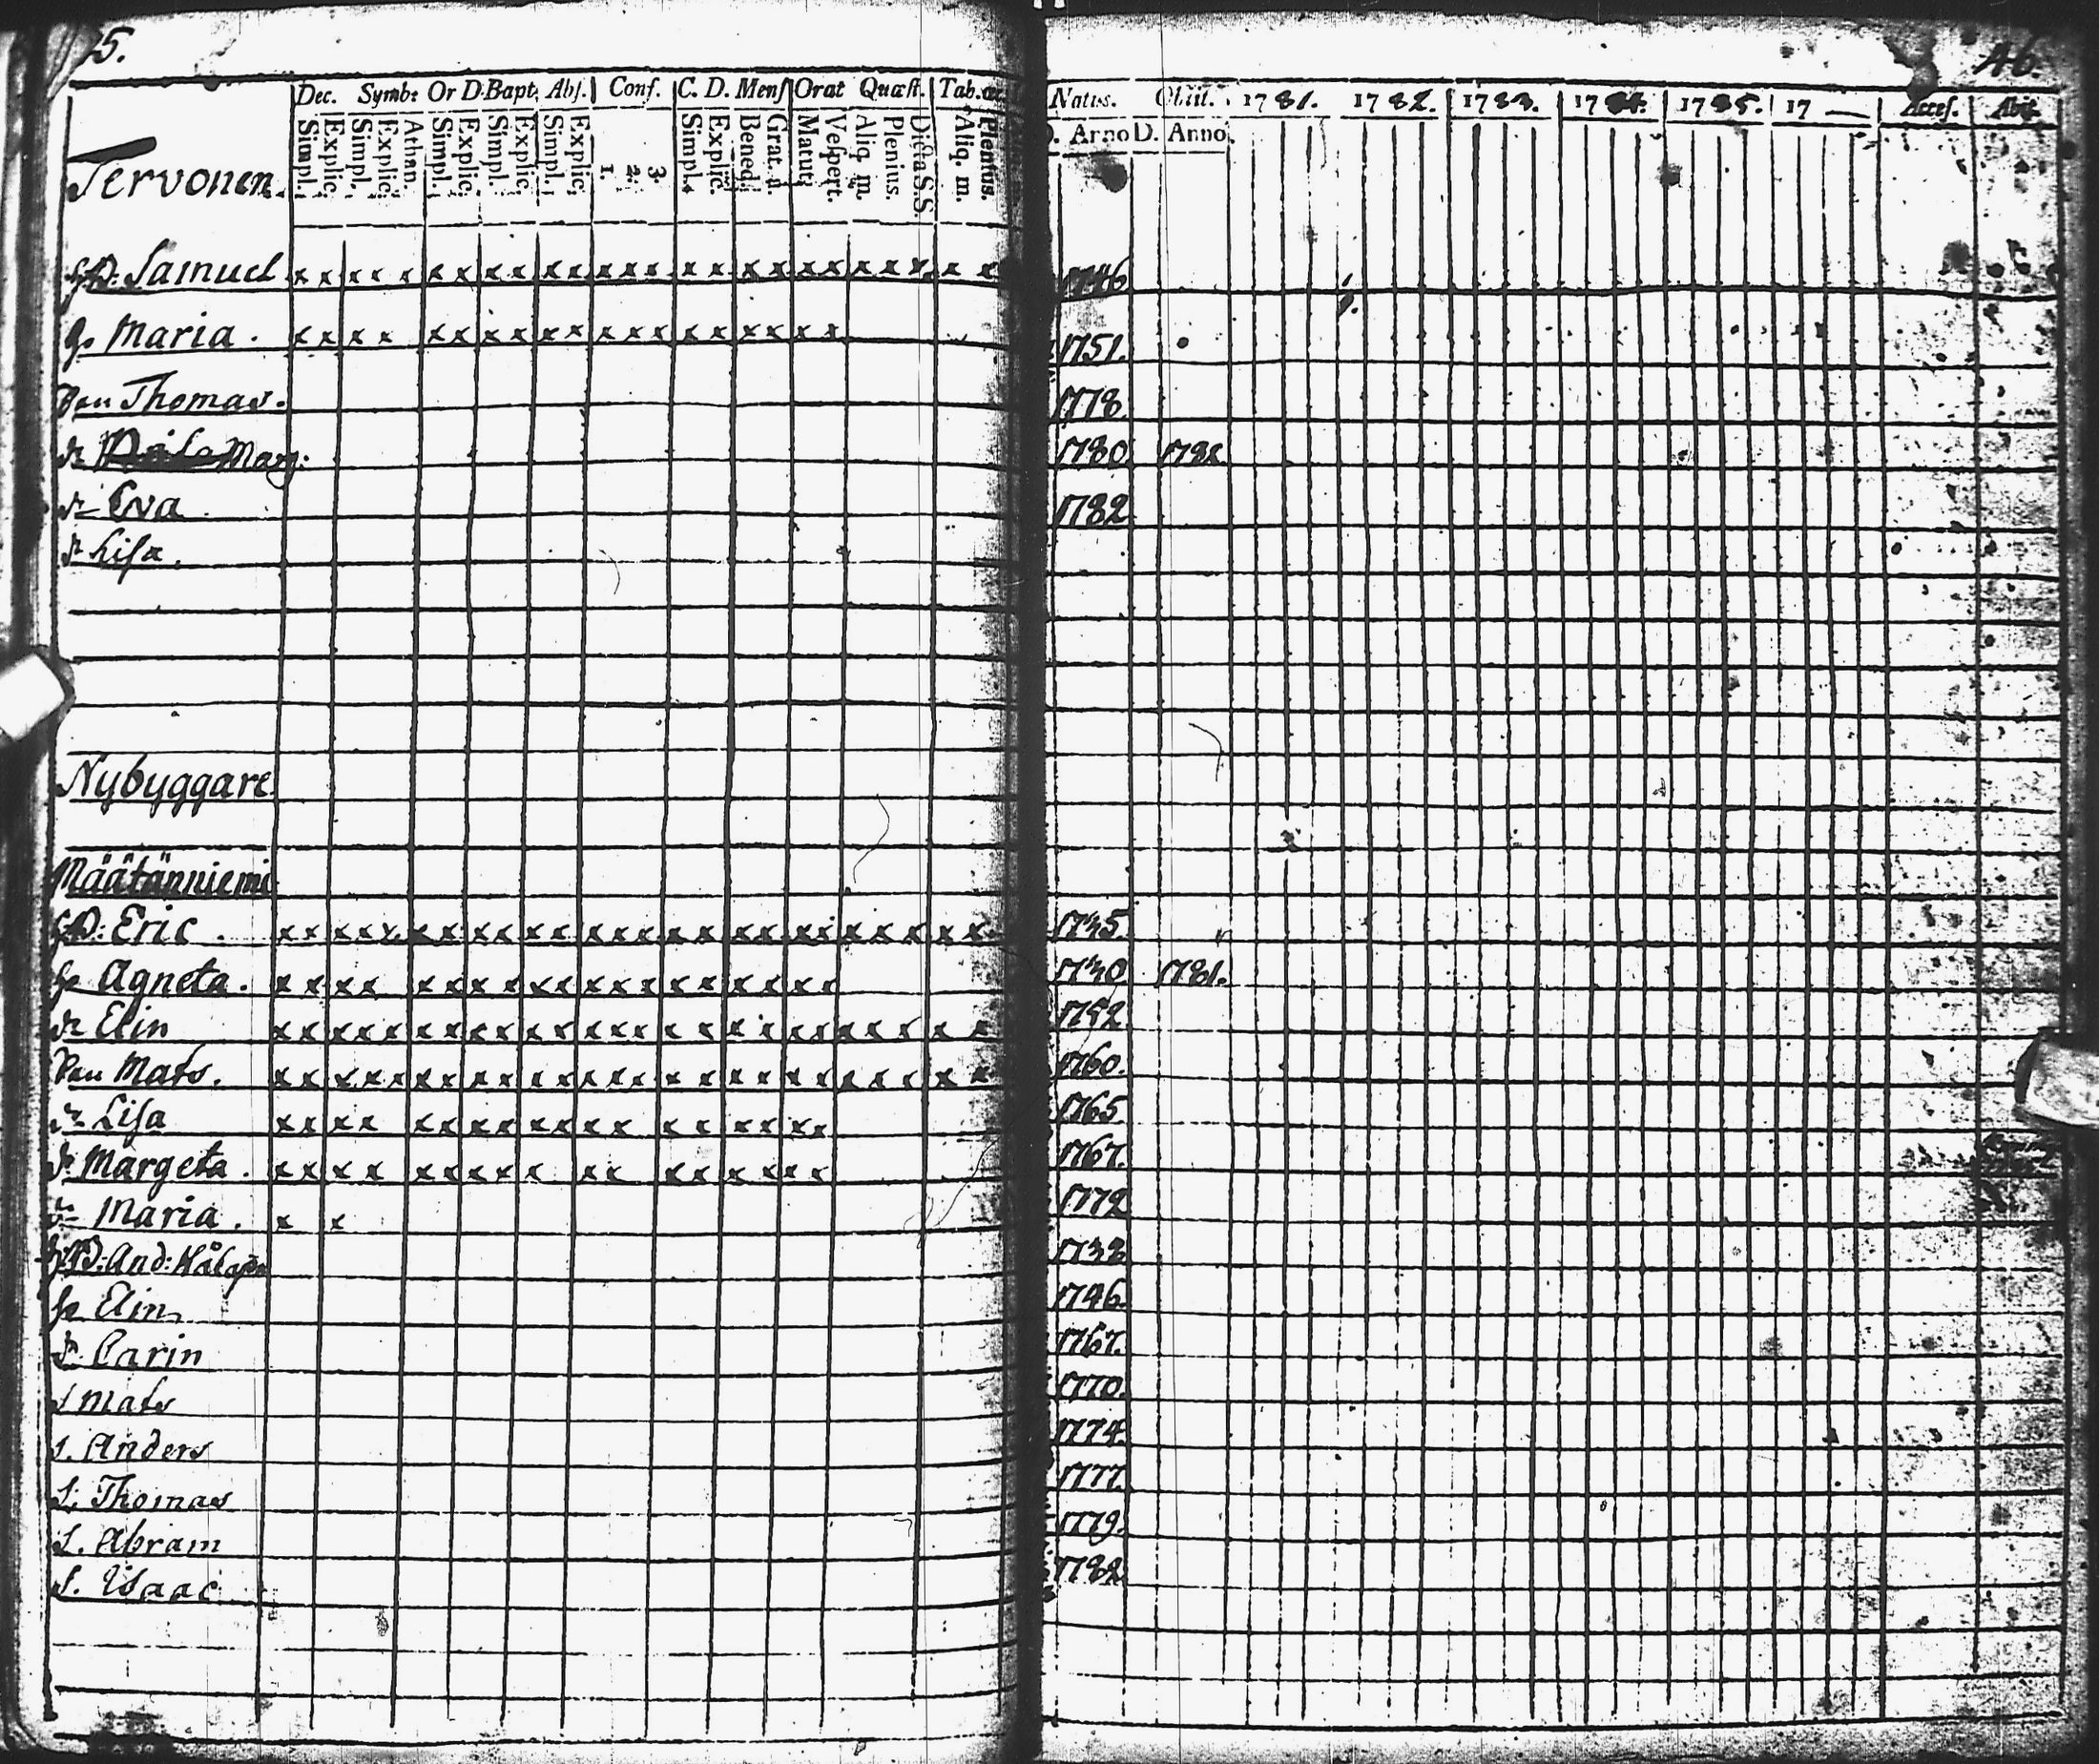 5. 46.
Dec. Symb: Or D. Bapt. Abs. Conf. C. D. Mens Orat Quæst. Tab. Natus. Obiit. 1781. 1782. 1783. 1784. 1785. 17 Acces. Abit.
Simpl. Explic. Simpl. Explic. Athan. Simpl. Explic. Simpl. Explic. Simpl. Explic. 1. 2. 3. Simpl. Explic. Bened. Grat. a. Matut. Vespert. Aliq. m. Plenius. Dicta S.S. Aliq. m. Plenius. D. Anno D. Anno
Tervonen.
Samuel x x x x x x x x x x x x x x x x x x x x x x x x x 1746
Maria. x x x x x x x x x x x x x x x x x x x 1751.
Thomas. 1778
Marg: 1780
Eva 1782
Lisa.
Nybyggare
Määtänniemi
Eric. x x x x x x x x x x x x x x x x x x x x x x x x x 1745.
Agneta. x x x x x x x x x x x x x x x x x x x 1740 1781.
Elin x x x x x x x x x x x x x x x x x x x x x x x x x 1752
Mats. x x x x x x x x x x x x x x x x x x x x x x x x x 1760.
Lisa x x x x x x x x x x x x x x x x x x 1765
Margeta. x x x x x x x x x x x x x x x x x 1767.
Maria. x x 1772
And: 1738
Elin 1746.
Carin 1767.
Mats 1770.
s. Anders 1774.
S. Thomas 1777.
S. Abram 1779.
S. Isaac 1782